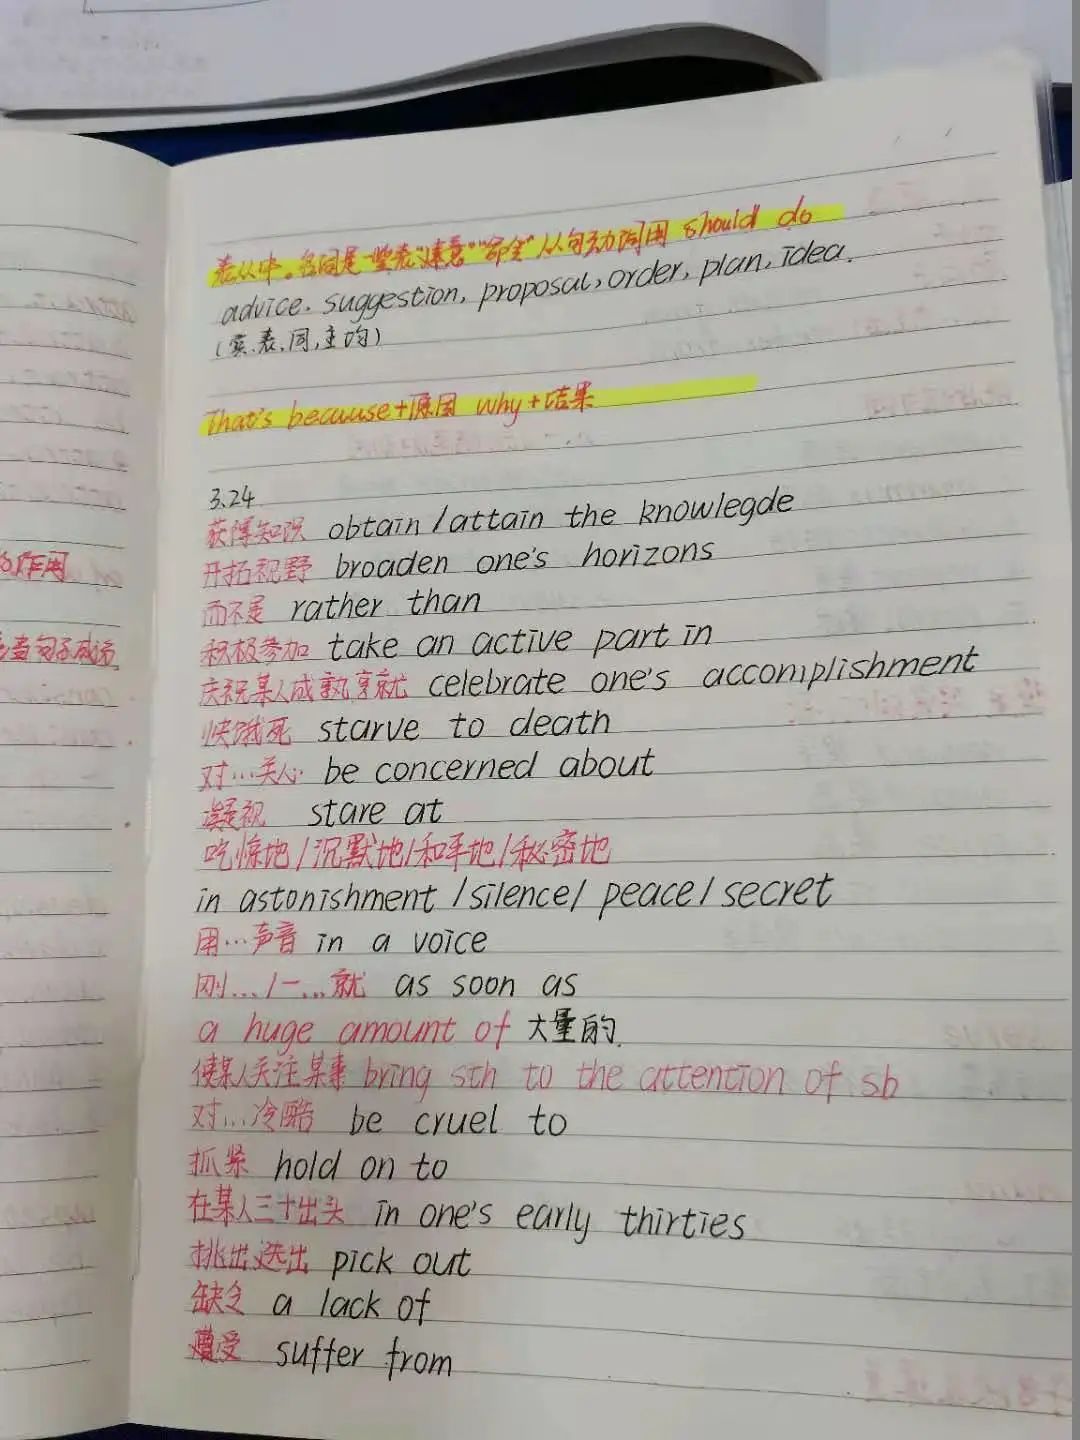 表从中。名词是一些表"建议""命令"从句动词用 should do
advice. suggestion, proposal, order, plan, idea.
(宾.表.同,主均)
That's because+原因 why+结果
3.24
获得知识 obtain/attain the knowlegde
开拓视野 broaden one's horizons
而不是 rather than
积极参加 take an active part in
庆祝某人成就 celebrate one's accomplishment
快饿死 starve to death
对…关心 be concerned about
凝视 stare at
吃惊地/沉默地/和平地/秘密地
in astonishment/silence/peace/secret
用…声音 in a voice
刚…/一…就 as soon as
a huge amount of 大量的.
使某人关注某事 bring sth to the attention of sb
对…冷酷 be cruel to
抓紧 hold on to
在某人三十出头 in one's early thirties
挑出选出 pick out
缺乏 a lack of
遭受 suffer from
的作用
句子成分